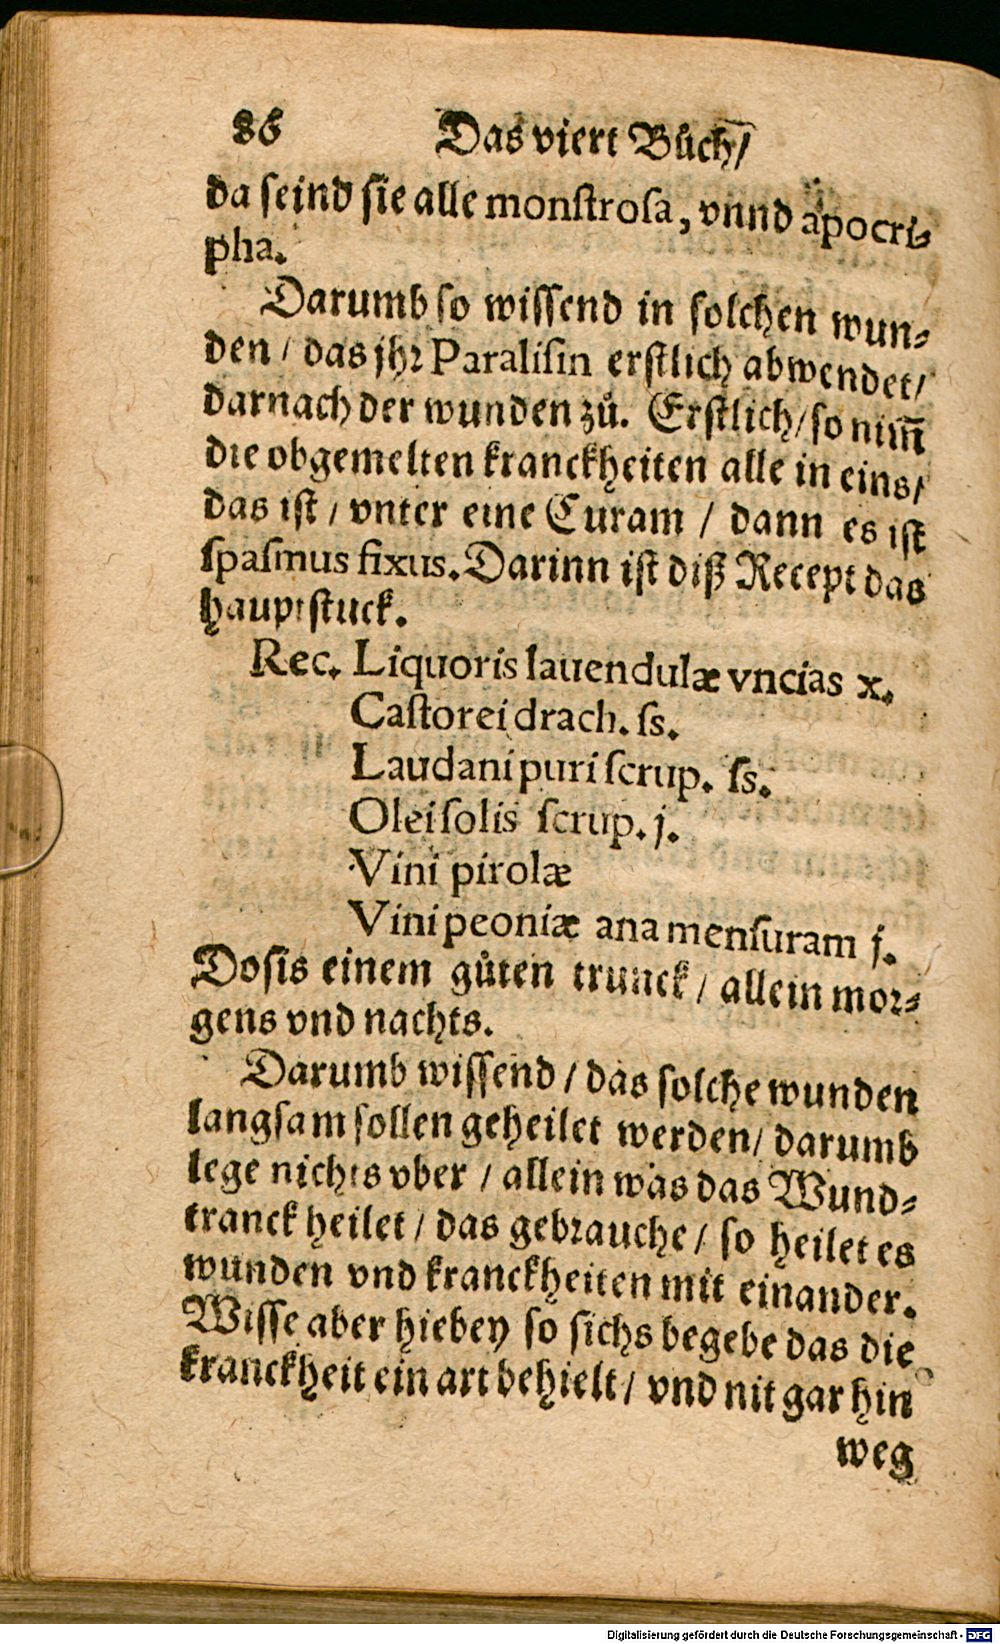 86 Das viert Bůch/
da seind sie alle monſtroſa, vnnd apocri⸗
pha.
Darumb so wiſſend in ſolchen wun⸗
den / das jhr Paraliſin erſtlich abwendet/
darnach der wunden zů. Erſtlich/ ſo nim̅
die obgemelten kranckheiten alle in eins/
das iſt / vnter eine Curam / dann es iſt
ſpaſmus fixus. Darinn iſt diß Recept das
hauptſtuck.
Rec. Liquoris lauendulæ vncias x.
Caſtorei drach. ſs.
Laudani puri ſcrup. ſs.
Olei ſolis ſcrup. j.
Vini pirolæ
Vini peoniæ ana menſuram j.
Doſis einem gůten trunck / allein mor⸗
gens vnd nachts.
Darumb wiſſend / das ſolche wunden
langſam ſollen geheilet werden/ darumb
lege nichts vber / allein was das Wund⸗
tranck heilet / das gebrauche / ſo heilet es
wunden vnd kranckheiten mit einander.
Wiſſe aber hiebey ſo ſichs begebe das die
kranckheit ein art behielt / vnd nit gar hin
weg
Digitalisierung gefördert durch die Deutsche Forschungsgemeinschaft - DFG